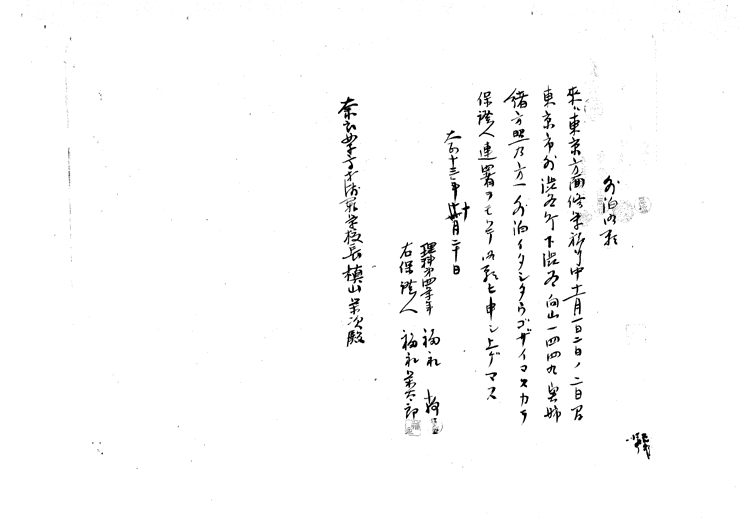 外泊御願
来ル東京方面修学旅行中十一月一日二日ノ二日間
東京市外渋谷町下渋谷向山一四四九 実姉
緒方照乃方ヘ外泊イタシタウゴザイマスカラ
保證人連署ヲモツテ御願ヒ申シ上ゲマス
大正十三年十月二十日
理科第四学年 福永
右保證人 福永栄太郎
奈良女子高等師範学校長 槇山栄次殿